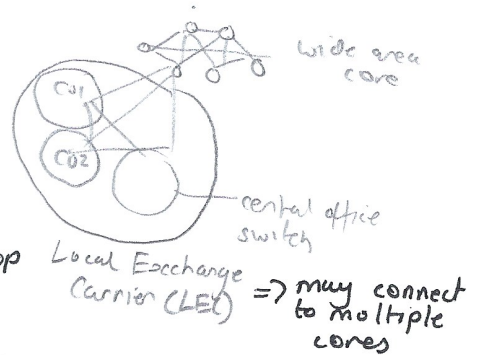 wide area
core
CO1
CO2
central office
switch
op
Local Excchange
Carrier (LEC)
=> may connect
to multiple
cores